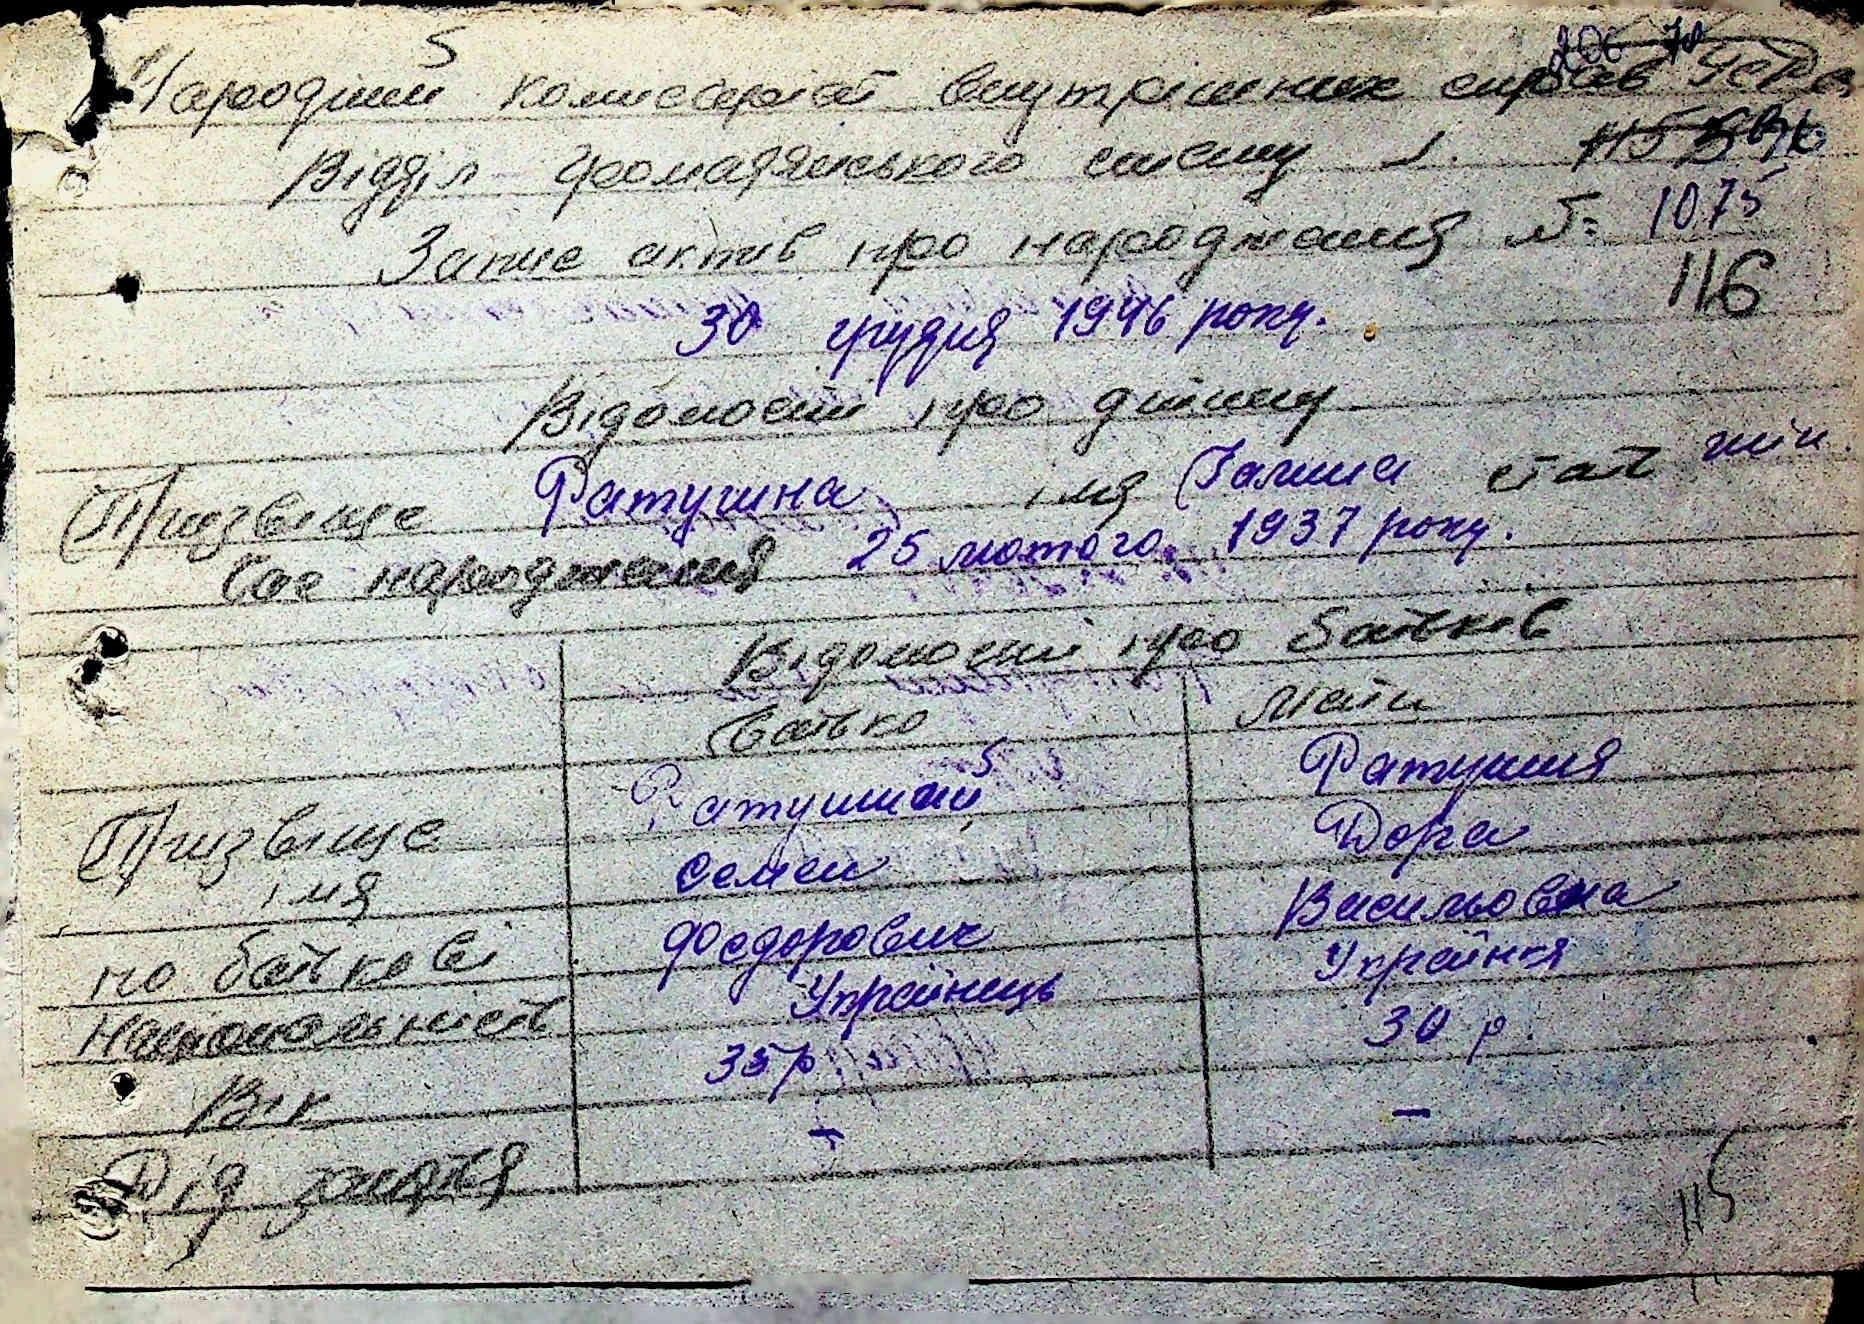 Народний комисаріат внутрішних справ
Відділ громадянського стану
Запис актів про народження № 1075
116
30 грудня 1946 року.
Відомости про дитину
Призвище Ратушна імя Галина стать жін.
Час народження 25 лютого 1937 року.
Відомости про батьків
Батько Мати
Призвище Ратушний Ратушня
імя Семен Дора
по батькові Федорович Васильовна
Національність Українець Українка
Вік 35 р 30 р.
Рід заняття - -
115